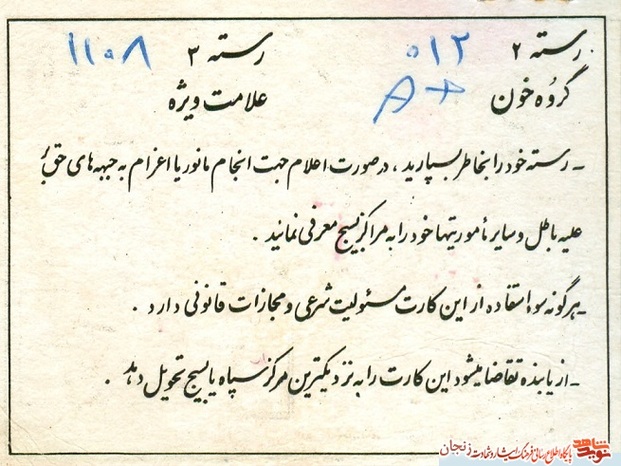 رسته ۲ ۰۱۲ رسته ۳ ۱۱۰۸
گروه خون A+ علامت ویژه
- رسته خود را بخاطر بسپارید ، در صورت اعلام جهت انجام مانور یا اعزام به جبهه های حق بر
علیه باطل و سایر مأموریتها خود را به مراکز بسیج معرفی نمائید .
- هرگونه سوء استفاده از این کارت مسئولیت شرعی و مجازات قانونی دارد .
- از یابنده تقاضا میشود این کارت را به نزدیکترین مرکز سپاه یا بسیج تحویل دهد .
نوید شاهد
پایگاه اطلاع رسانی فرهنگ ایثار و شهادت زنجان